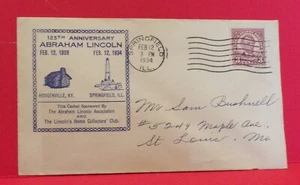 125TH ANNIVERSARY
ABRAHAM LINCOLN
FEB. 12, 1809 FEB. 12, 1934
HODGENVILLE, KY. SPRINGFIELD, ILL.
This Cachet Sponsored By
The Abraham Lincoln Association
AND
The Lincoln's Home Collectors' Club.
SPRINGFIELD
FEB 12
2 PM
1934
ILL.
Mr Sam Bushnell
#5249 Maple Ave
St Louis, Mo